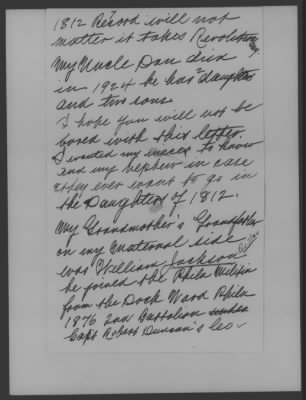 1812 Record will not
matter it takes Revolution
ary
My Uncle Dan died
in 1924 he has 2 daughters
and two sons.
I hope you will not be
bored with this letter.
I wanted my nieces to know
and my nephew in case
they ever want to go in
the Daughters of 1812.
My Grandmother's Grandfather
on my maternal side
was William Jackson
he joined the Phila Militia
from the Dock Ward Phila
1876 2nd Battalion
Capt Robert Duncan's